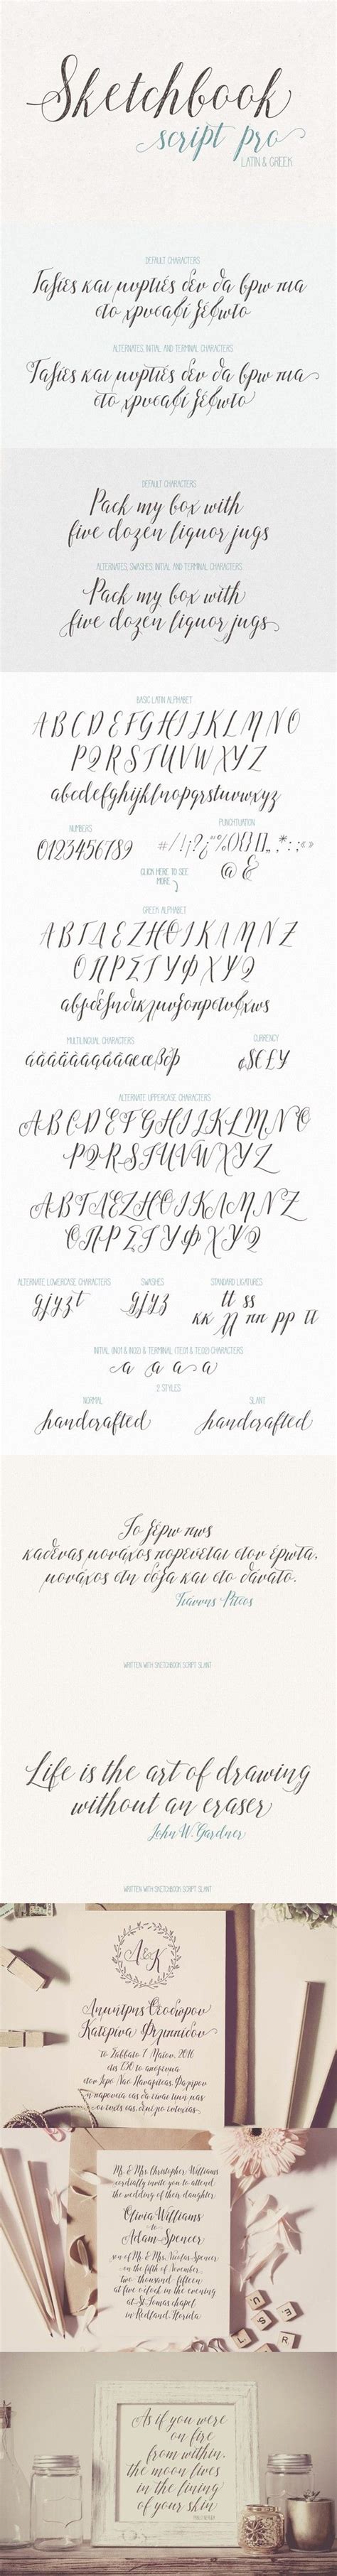 Sketchbook
script pro
LATIN & GREEK
DEFAULT CHARACTERS
Γαζίες και μυρτιές δεν θα βρω πια
στο χρυσαφί ξέφωτο
ALTERNATES, INITIAL AND TERMINAL CHARACTERS
Γαζίες και μυρτιές δεν θα βρω πια
στο χρυσαφί ξέφωτο
DEFAULT CHARACTERS
Pack my box with
five dozen liquor jugs
ALTERNATES, SWASHES, INITIAL AND TERMINAL CHARACTERS
Pack my box with
five dozen liquor jugs
BASIC LATIN ALPHABET
A B C D E F G H I J K L M N O
P Q R S T U V W X Y Z
abcdefghijklmnopqrstuvwxyz
NUMBERS
0123456789
PUNCTUATION
@ &
CLICK HERE TO SEE
MORE
GREEK ALPHABET
Α Β Γ Δ Ε Ζ Η Θ Ι Κ Λ Μ Ν Ξ
Ο Π Ρ Σ Τ Υ Φ Χ Ψ Ω
MULTILINGUAL CHARACTERS
CURRENCY
¢$€£¥
ALTERNATE UPPERCASE CHARACTERS
A B C D E F G H I J K L M N O
P Q R S T U V W X Y Z
Α Β Γ Δ Ε Ζ Η Θ Ι Κ Λ Μ Ν Ξ
Ο Π Ρ Σ Τ Υ Φ Χ Ψ Ω
ALTERNATE LOWERCASE CHARACTERS
gjyzt
SWASHES
gjyz
STANDARD LIGATURES
tt ss
κκ λλ ππ ρρ ττ
INITIAL (INO1 & INO2) & TERMINAL (TEO1 & TEO2) CHARACTERS
a a a a
2 STYLES
NORMAL
handcrafted
SLANT
handcrafted
Το ξέρω πως
καθένας μονάχος πορεύεται στον έρωτα,
μονάχος στη δόξα και στο θάνατο.
Γιάννης Ρίτσος
WRITTEN WITH SKETCHBOOK SCRIPT SLANT
Life is the art of drawing
without an eraser
John W. Gardner
WRITTEN WITH SKETCHBOOK SCRIPT SLANT
A&K
Δημήτρης Θεοδώρου
Κατερίνα Φιλιππίδου
το Σάββατο 7 Μαΐου, 2016
στις 7.30 το απόγευμα
στον Ιερό Ναό Παναγίτσας, Φαλήρου
η παρουσία σας θα είναι τιμή μας
Mr. & Mrs. Christopher Williams
cordially invite you to attend
the wedding of their daughter
Olivia Williams
to
Adam Spencer
son of Mr. & Mrs. Nicolas Spencer
on the fifth of November
Two thousand fifteen
at five o'clock in the evening
at St. Tomas chapel
in Redland, Florida
As if you were
on fire
from within,
the moon lives
in the lining
of your skin